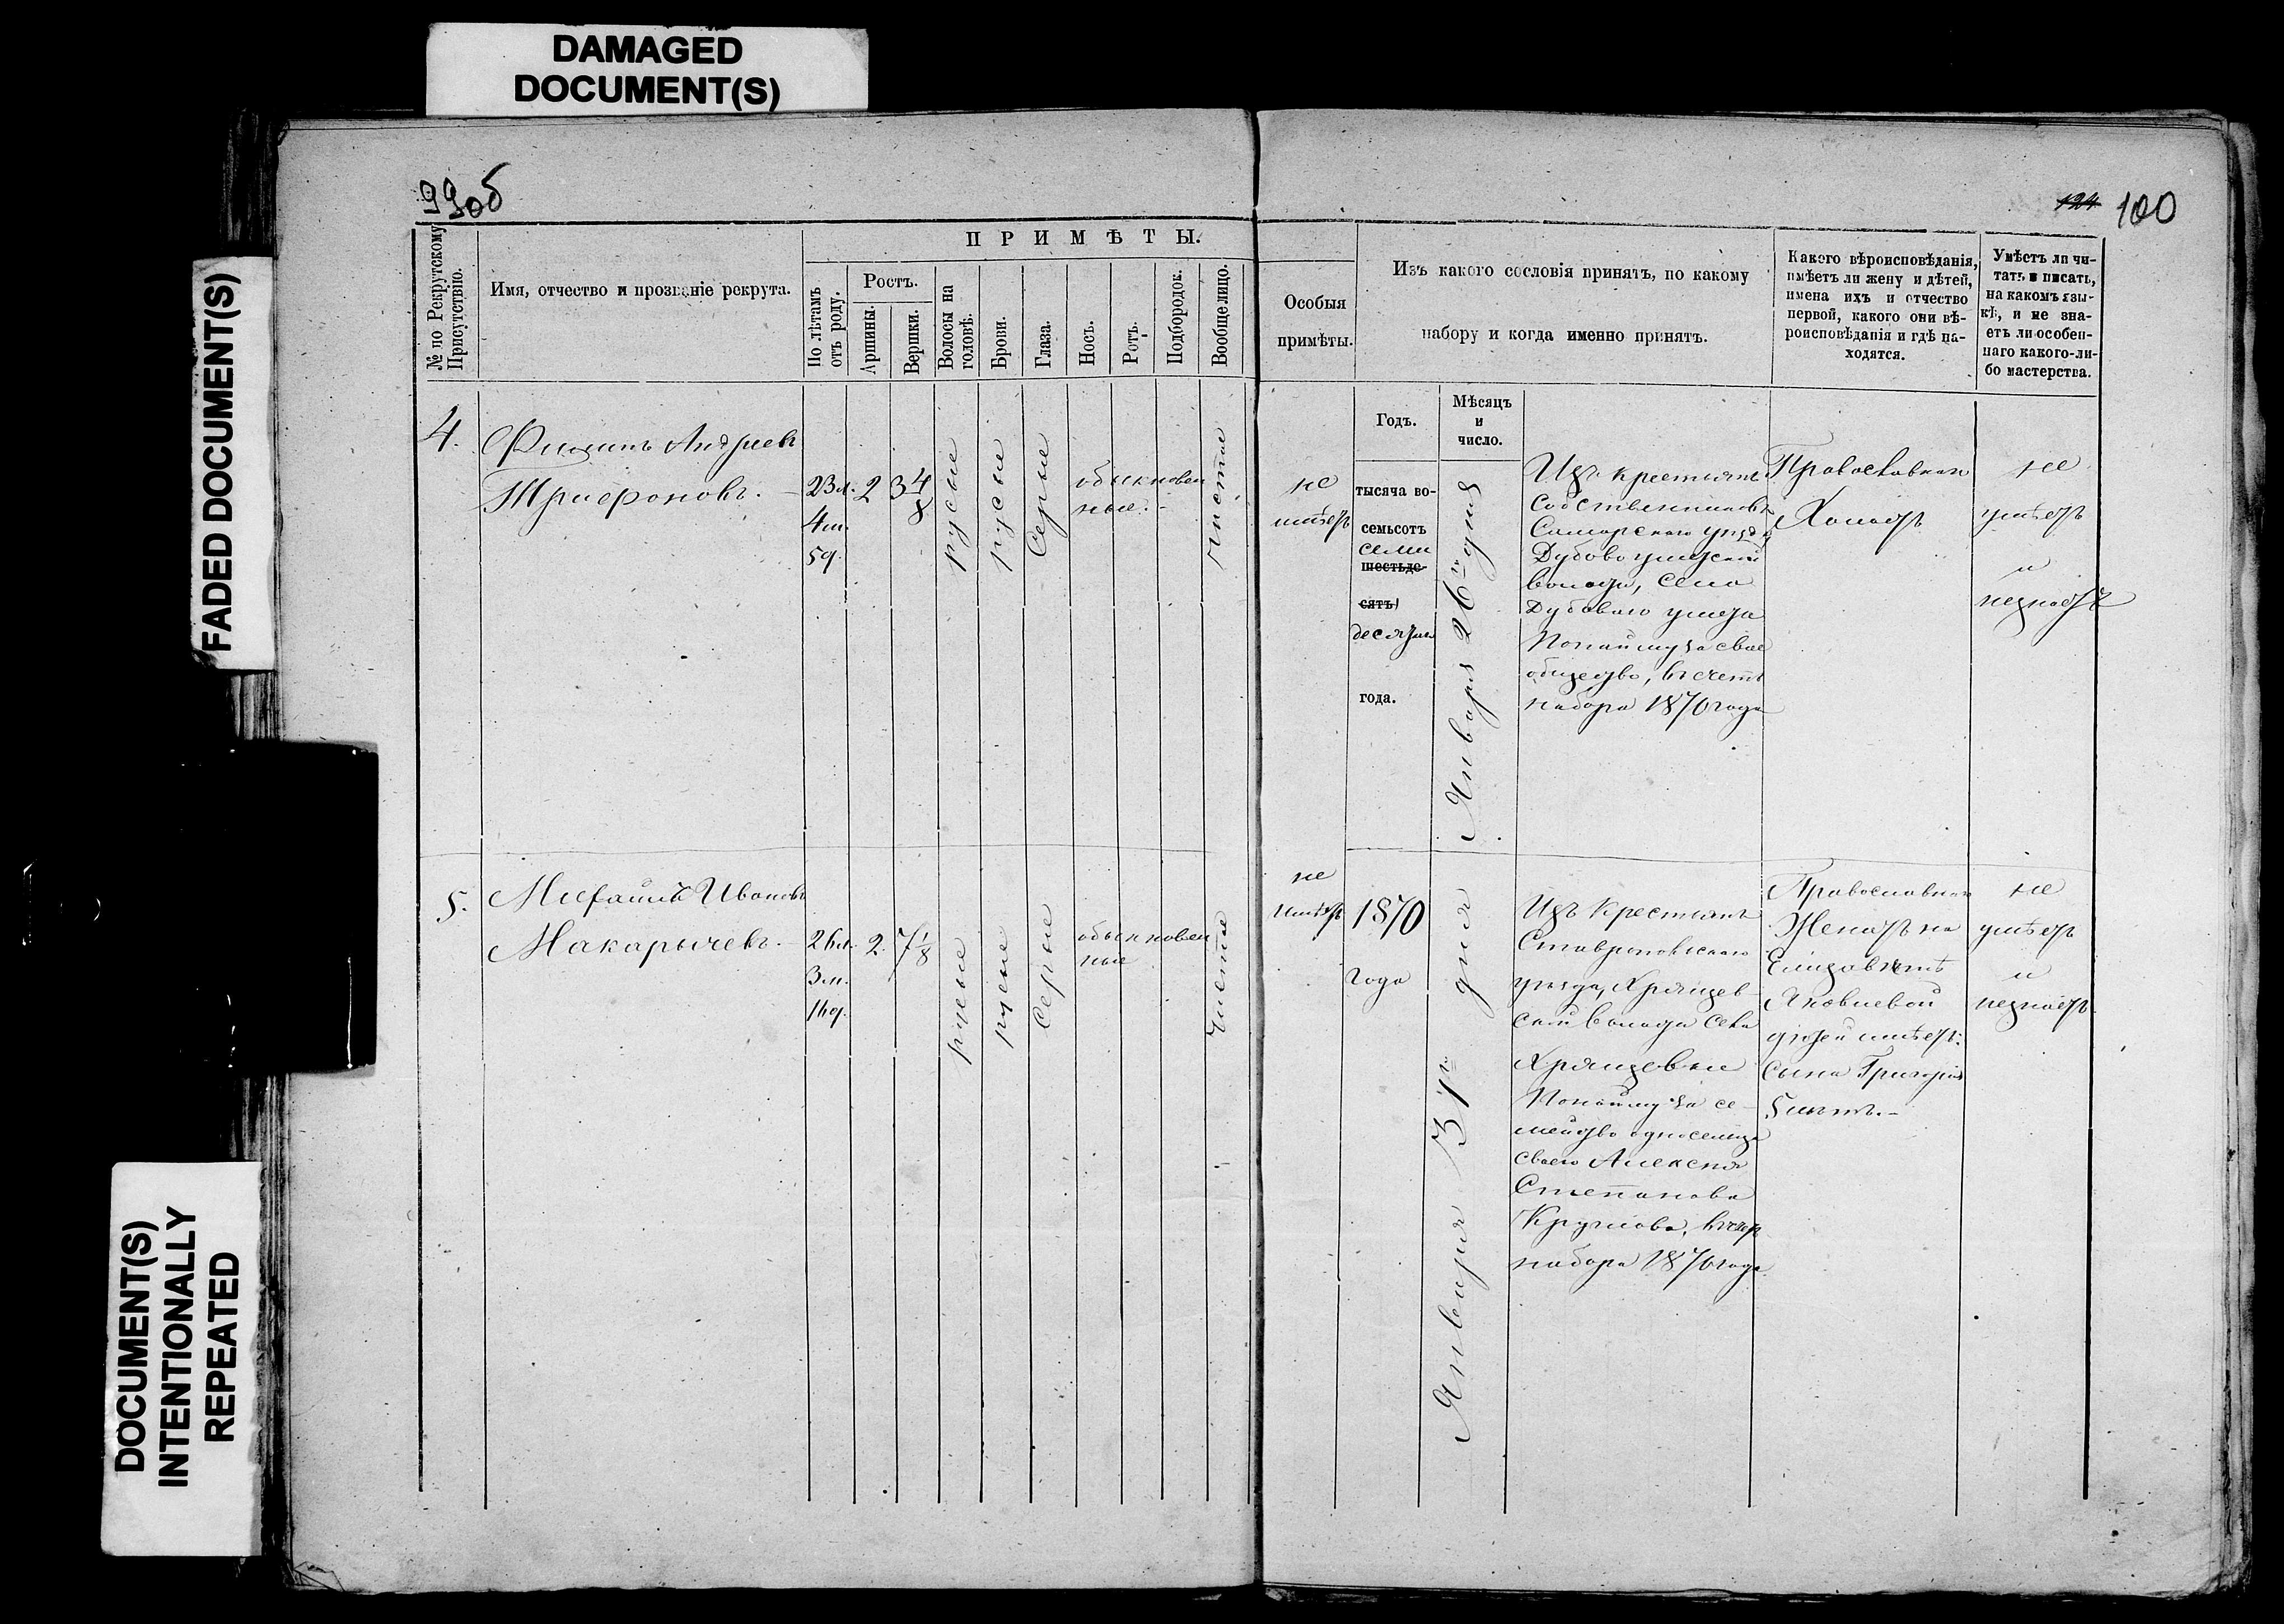 DAMAGED
DOCUMENT(S)
FADED DOCUMENT(S)
DOCUMENT(S)
INTENTIONALLY
REPEATED
99об
124 100
№ по Рекрутскому
Присутствію.
Имя, отчество и прозваніе рекрута.
ПРИМѢТЫ.
По лѣтамъ
отъ роду.
Ростъ.
Аршины.
Вершки.
Волосы на
головѣ.
Брови.
Глаза.
Носъ.
Ротъ.
Подбородок.
Вообще лицо.
Особыя
примѣты.
Изъ какого сословія принятъ, по какому
набору и когда именно принятъ.
Какого вѣроисповѣданія,
имѣетъ ли жену и дѣтей,
имена ихъ и отчество
первой, какого они вѣ-
роисповѣданія и гдѣ на-
ходятся.
Умѣетъ ли чи-
тать и писать,
на какомъ язы-
кѣ, и не зна-
етъ ли особен-
наго какого-ли-
бо мастерства.
4.
Филипъ Андреевъ
Трифоновъ.
23 л.
4 м.
5 д.
2
3 4/8
русые
русые
Серые
обыкновен
ные.
чистое
не
имѣетъ
Годъ.
тысяча во-
семьсотъ
семи
шестьде-
сятъ
десятаго
года.
Мѣсяцъ
и
число.
Января 26го дня
Изъ крестьянъ
собственниковъ
Самарскаго уѣзда
Дубово уметской
волости, села
Дубоваго умета
По найму за свое
общество, въ счетъ
набора 1870 года
Православнаго
Холостъ
не
умѣетъ
и
незнаетъ
5.
Михаилъ Ивановъ
Макарычевъ.
26 л.
3 м.
16 д.
2.
7 1/8
русые
русые
Серые
обыкновен
ные
Чистое
не
имѣетъ
1870
года
Января 31го дня
Изъ крестьянъ
Ставропольскаго
уѣзда, Хрящев-
ской волости села
Хрящевки
По найму за се-
мейство односельца
своего Алексея
Степанова
Круглова, въ счетъ
набора 1870 года
Православнаго
Женатъ на
Елизаветѣ
Яковлевой
детей имѣетъ:
Сына Григорія
5 лѣтъ.
не
умѣетъ
и
незнаетъ